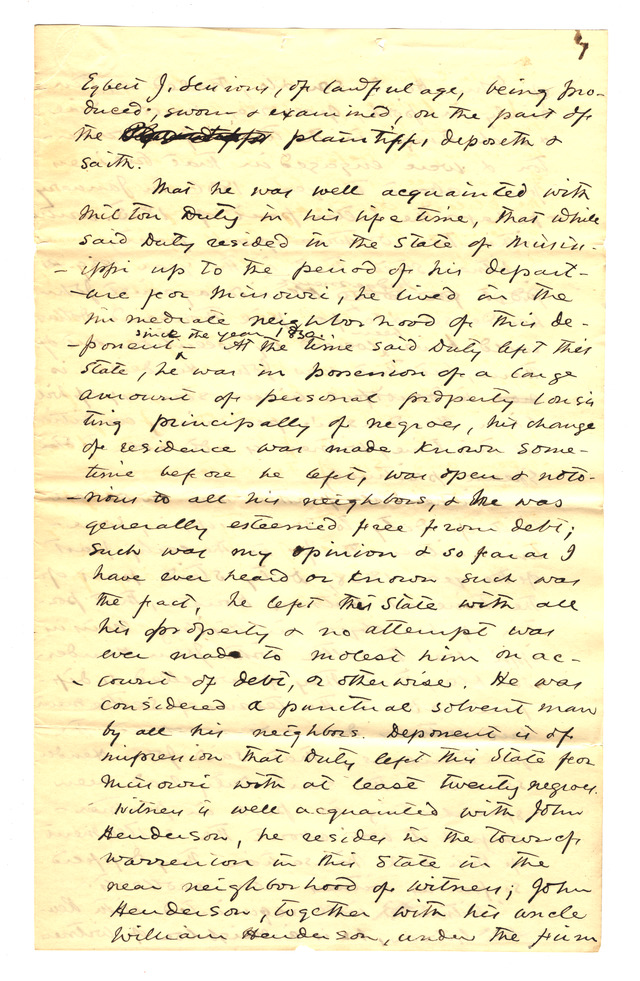 7
Egbert J. Sessions, of lawful age, being pro-
duced, sworn & examined, on the part of
the plaintiffs, deposeth &
saith.
That he was well acquainted with
Milton Duty in his life time, that while
said Duty resided in the State of Missis-
-ippi up to the period of his depart-
-ure for Missouri, he lived in the
immediate neighborhood of this de-
since the year 183
-ponent - At the time said Duty left this
State, he was in possession of a large
amount of personal property consis
ting principally of negroes, his change
of residence was made known some-
time before he left, was open & noto-
-rious to all his neighbors, & he was
generally esteemed free from debt;
such was my opinion & so far as I
have ever heard or known such was
the fact, he left this State with all
his property & no attempt was
ever made to molest him on ac-
count of debt, or otherwise. He was
considered a punctual solvent man
by all his neighbors. Deponent is of
impression that Duty left this State for
Missouri with at least twenty negroes.
Witness is well acquainted with John
Henderson, he resides in the town of
Warrenton in this State in the
near neighborhood of witness; John
Henderson, together with his uncle
William Henderson, under the firm